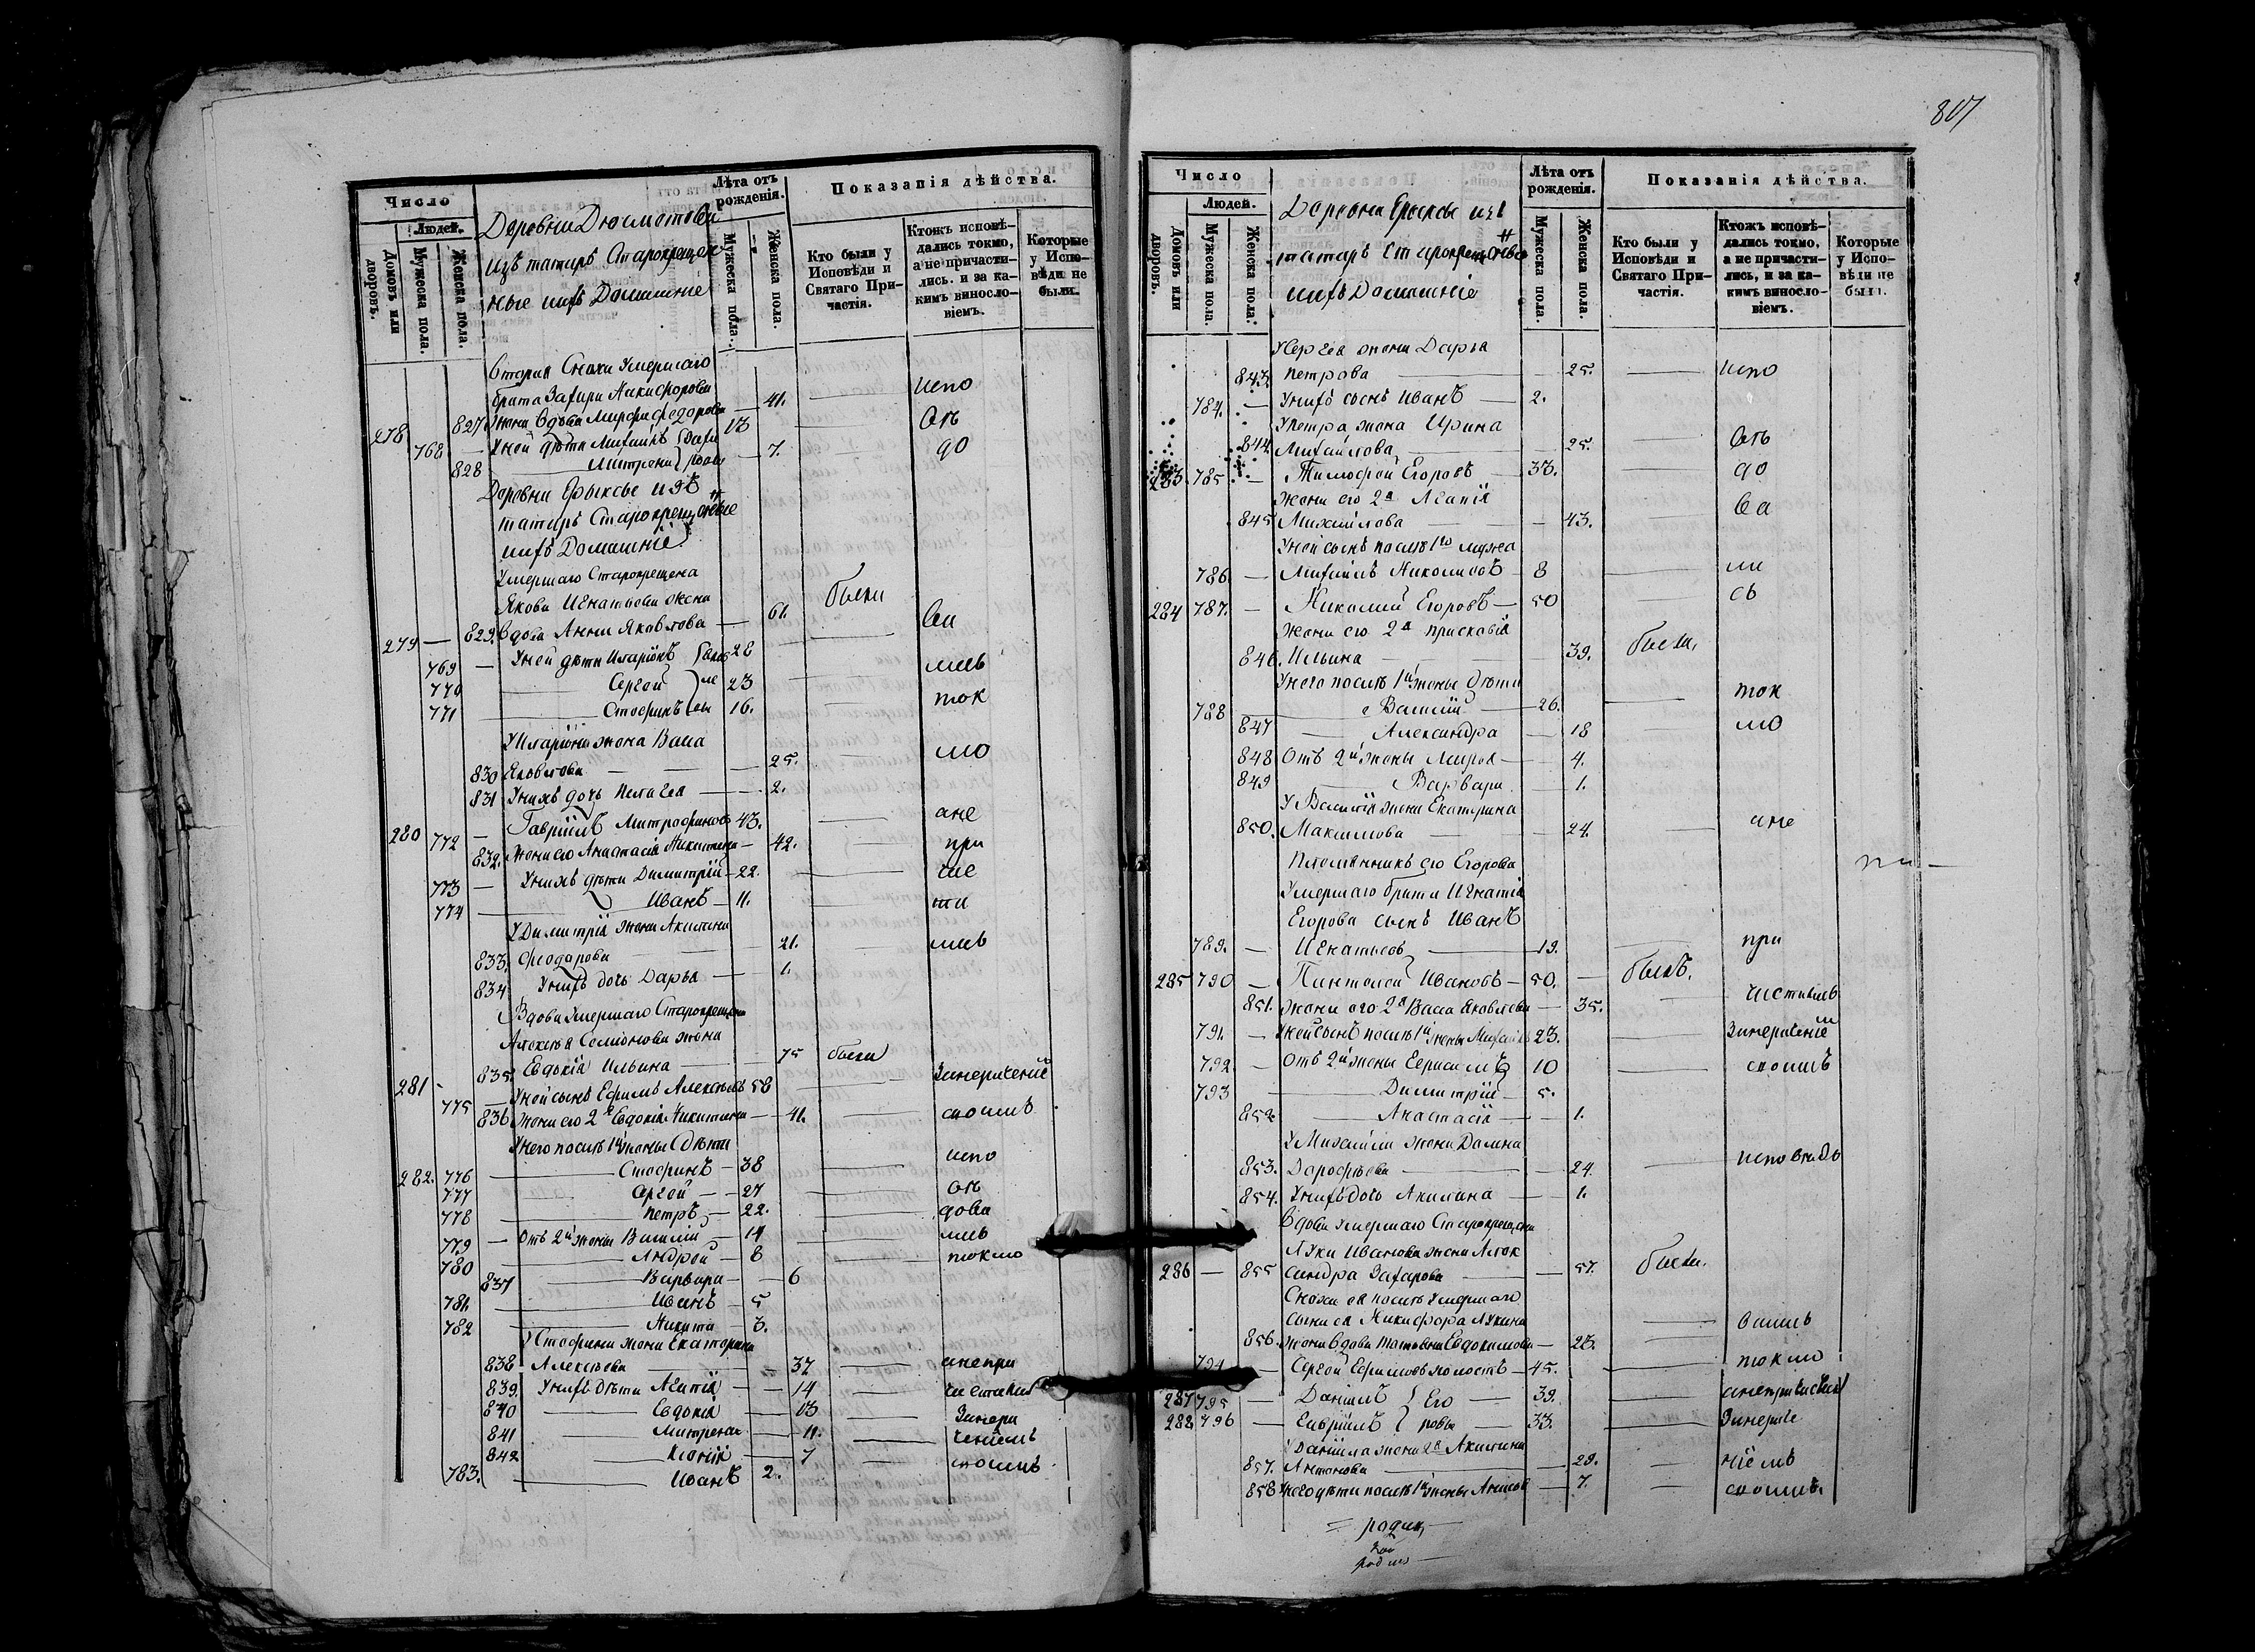 807
Число
Людей.
Домовъ или дворовъ.
Мужеска пола.
Женска пола.
Деревни Дюсметьева
изъ татаръ Старокрещен
ные ихъ Домашніе
Лѣта отъ рожденія.
Мужеска пола.
Женска пола.
Показанія дѣйства.
Кто были у Исповѣди и Святаго При-частія.
Ктожъ исповѣ-дались токмо, а не причасти-лись. и за ка-кимъ винословіемъ.
Которые у Испо-вѣди не были.
Вторая Сноха Умершаго
брата Захара Никифорова 41. испо
278 827 жена вдова Марфа Федорова
768 — У ней дѣти Михаилъ 13 вѣ
828 — Матрена 7. до
Деревни Ерыксы изъ
татаръ Старокрещеные
ихъ Домашніе
Умершаго Старокрещена
Якова Игнатьева жена
279 — 829. вдова Анна Яковлова — 61. была
769 — У ней дѣти Иларіонъ 28 ва
770 — Сергей 23 лись
771 — Стефанъ 16. ток
У Иларіона жена Васса
830 Яковлова — 25. мо
831 У нихъ дочь Пелагея — 2.
280 772 — Гавріилъ Митрофановъ 43. ане
832. Жена его Анастасія Никитина — 42. при
773 — У нихъ дѣти Димитрій — 22. час
774 — Иванъ — 11. ти
У Димитрія жена Акилина
833. Феодорова 21. лись
834 У нихъ дочь Дарья — 1.
Вдова Умершаго Старокрещена
Алексѣя Семіонова жена
281 835. Евдокія Ильина — 75 была
775 — У ней сынъ Ефимъ Алексѣевъ 58 Занераченіемъ
836 Жена его 2я Евдокія Никитина — 41. своимъ
У него послѣ 1й жены Дѣти
282. 776 — Стефанъ — 38 испо
777 — Сергей — 27 вѣ
778 — Петръ — 22. дова
779 — Отъ 2й жены Василій — 14 лись
780 — Андрей — 8 токмо
837 — Варвара — 6
781. — Иванъ — 5
782 — Никита — 3.
У Стефана жена Екатерина
838 Алексѣева — 37 анепри
839. У нихъ дѣти Агапія — 14 частились
840 — Евдокія — 13 Занера
841 — Матрена — 11. ченіемъ
842 — Ксенія — 7 своимъ
783. — Иванъ 2.
Число
Людей.
Домовъ или дворовъ.
Мужеска пола.
Женска пола.
Деревни Ерыксы изъ
татаръ Старокрещеные
ихъ Домашніе
Лѣта отъ рожденія.
Мужеска пола.
Женска пола.
Показанія дѣйства.
Кто были у Исповѣди и Святаго При-частія.
Ктожъ исповѣ-дались токмо, а не причасти-лись, и за ка-кимъ винословіемъ.
Которые у Испо-вѣди не были.
У Сергея жена Дарья
843. Петрова — 25. испо
784. — У нихъ сынъ Иванъ — 2.
У Петра жена Ирина
844. Михайлова — 25. вѣ
283 785 — Тимофей Егоровъ — 33. до
Жена его 2я Агапія
845 Михайлова — 43. ва
У ней сынъ послѣ 1го мужа
786. — Михаилъ Николаевъ 8 ли
284 787. — Николай Егоровъ — 50 сь
Жена его 2я Прасковія
846. Ильина — 39. была.
У него послѣ 1й жены Дѣти
788 — Василій — 26. ток
847 — Александра — 18 мо
848 Отъ 2й жены Марѳа — 4.
849 — Варвара — 1.
У Василія жена Екатерина
850. Максимова — 24. ане
Племянникъ его Егорова
Умершаго брата Игнатія
Егорова сынъ Иванъ
789. — Игнатьевъ — 19. при
285 790 — Пантелей Ивановъ — 50. былъ.
851. Жена его 2я Васса Яковлева — 35. частились
791. — У ней сынъ послѣ 1й жены Михаилъ 23. Занераченіемъ
792. — Отъ 2й жены Герасимъ 10 своимъ
793 — Димитрій — 5.
852 — Анастасія — 1.
У Михаила жена Домна
853. Дорофѣева — 24. исповѣдо
854. У нихъ дочь Акилина — 1.
Вдова умершаго Старокрещена
Луки Иванова жена Алек
286 — 855 сандра Захарова — 57. была.
Сноха ея послѣ Умершаго
сына ея Никифора Лукина
856. Жена вдова Татьяна Евдокимова — 23. вались
794 — Сергей Ефимовъ холостъ — 45. токмо
287 795 — Даніилъ Его — 39. анепричастились
288 796 — Гавріилъ ровы — 33. Занера
У Даніила жена 2я Акилина
857. Антонова — 29. ніемъ
858 У него дѣти послѣ 1й жены Анисья — 7. своимъ.